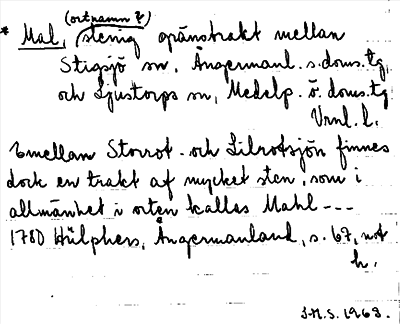 (ortnamn?)
* Mal, stenig gränstrakt mellan
Stigsjö sn, Ångermanl. s. doms. tg
och Ljustorps sn, Medelp. ö. doms. tg
Vrnl. l.
Emellan Storrot- och Lilrotsjön finnes
dock en trakt af mycket sten, som i
allmänhet i orten kallas Mahl ---
1780 Hülphers, Ångermanland, s. 67, not
h.
J.H.S. 1963.